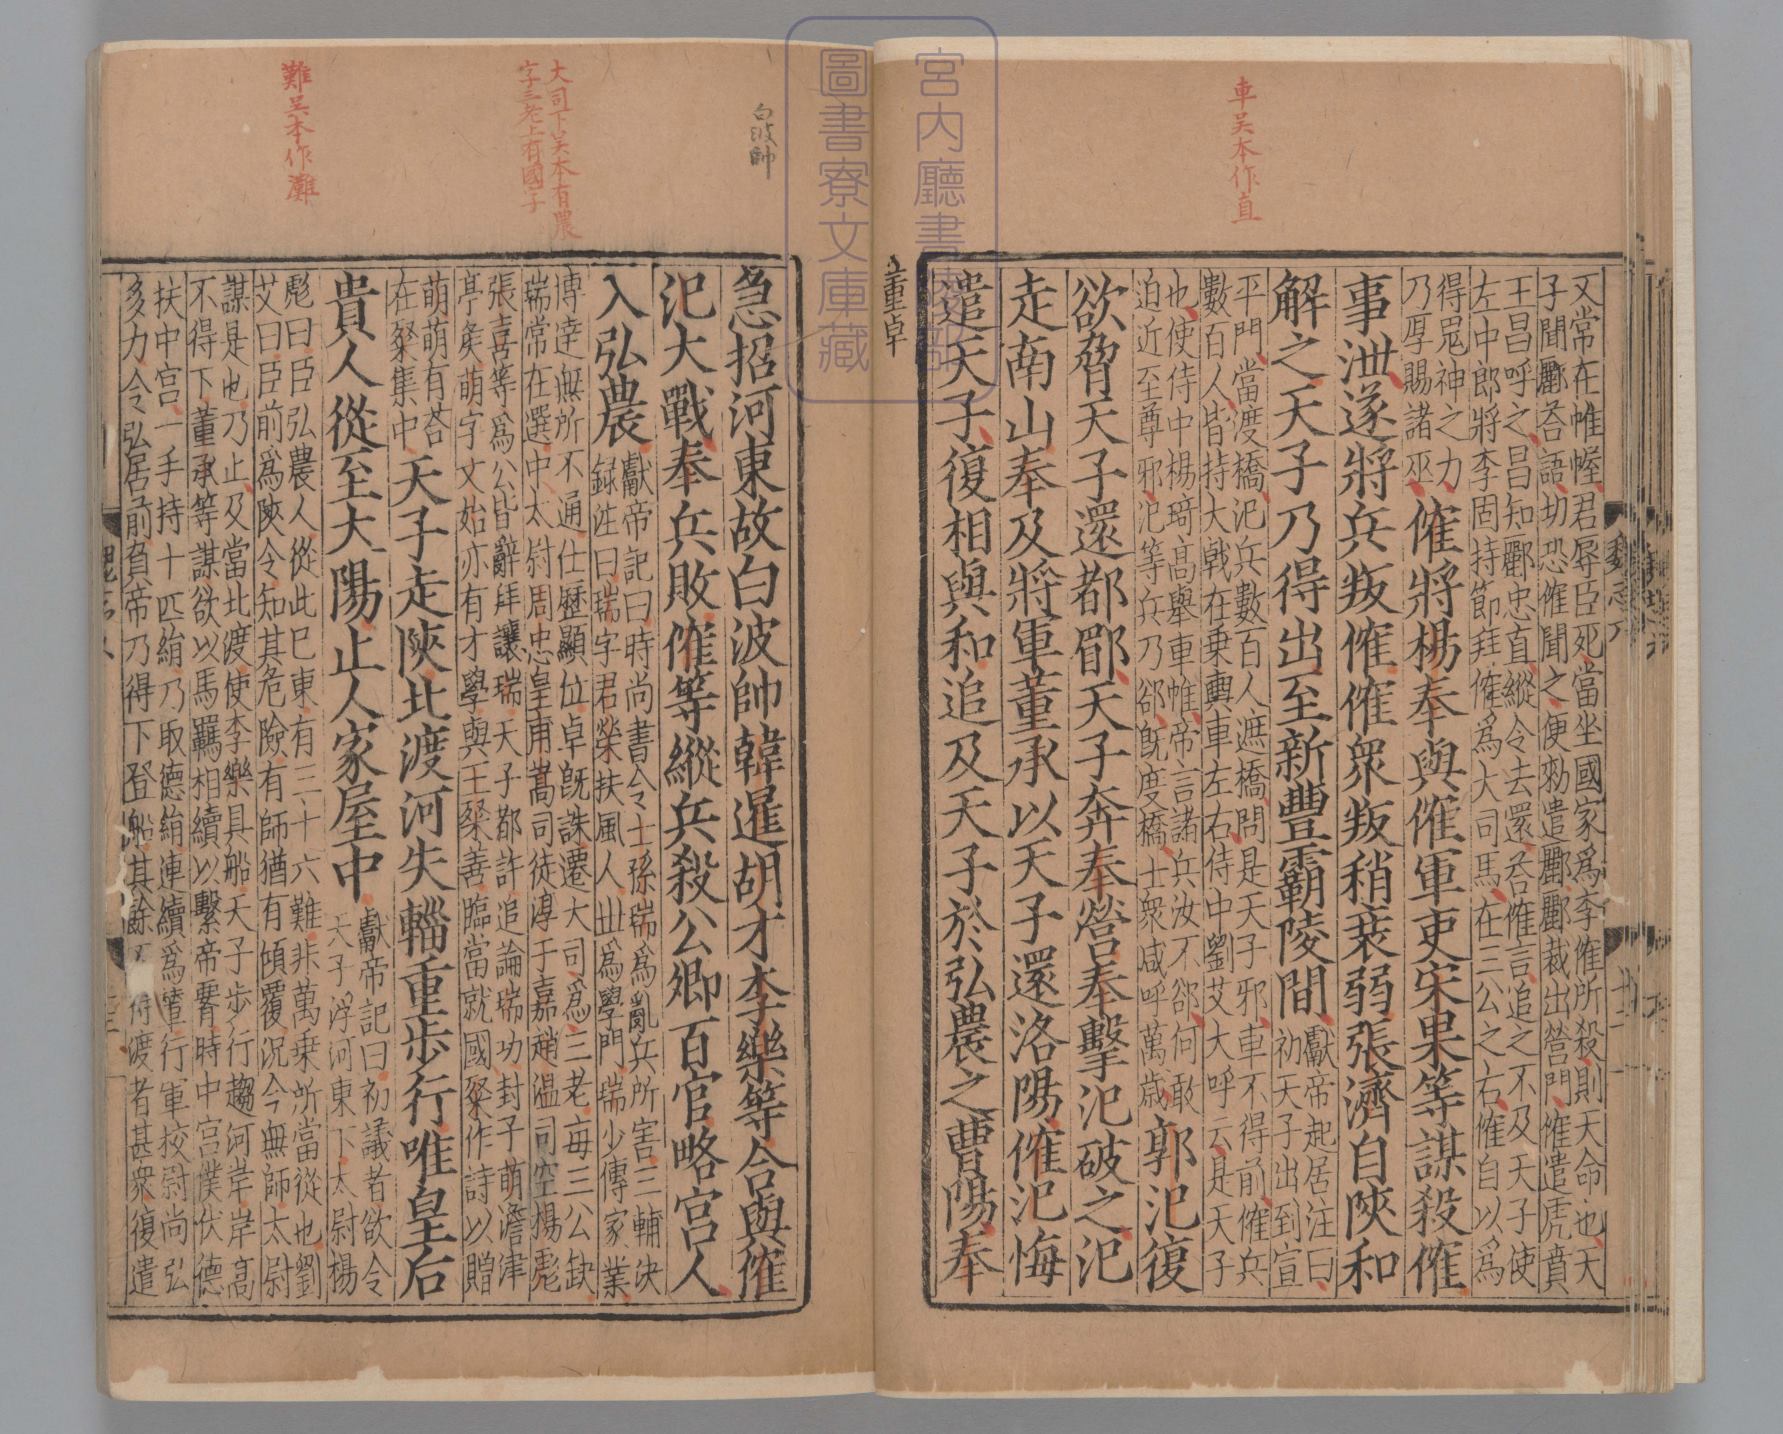 車吳本作直
又常在帷幄君辱臣死當坐國家爲李傕所殺則天命也天
子聞酈荅語切恐傕聞之便勑遣酈酈裁出營門傕遣虎賁
王昌呼之昌知酈忠直縱令去還荅傕言追之不及天子使
左中郎將李固持節拜傕爲大司馬在三公之右傕自以爲
得鬼神之力
乃厚賜諸巫
傕將楊奉與傕軍吏宋果等謀殺傕
事泄遂將兵叛傕傕衆叛稍衰弱張濟自陝和
解之天子乃得出至新豐霸陵間
獻帝起居注曰
初天子出到宣
平門當渡橋汜兵數百人遮橋問是天子邪車不得前傕兵
數百人皆持大戟在乗輿車左右侍中劉艾大呼云是天子
也使侍中楊琦髙舉車帷帝言諸兵汝不郤何敢
迫近至尊邪汜等兵乃郤旣度橋士衆咸呼萬歳
郭汜復
欲脅天子還都郿天子奔奉營奉擊汜破之汜
走南山奉及將軍董承以天子還洛陽傕汜悔
遣天子復相與和追及天子於弘農之曹陽奉
董卓
宮内廳書陵部
圖書寮文庫藏
白波帥
大司下吳本有農
字三老上有國字
難吳本作灘
急招河東故白波帥韓暹胡才李樂等合與傕
汜大戰奉兵敗傕等縱兵殺公卿百官略宮人
入弘農
獻帝記曰時尚書令士孫瑞爲亂兵所害三輔決
録注曰瑞字君榮扶風人丗爲學門瑞少傳家業
博達無所不通仕歷顯位卓旣誅遷大司爲三老毎三公缺
瑞常在選中太尉周忠皇甫嵩司徒淳于嘉趙溫司空楊彪
張喜等爲公皆辭拜讓瑞天子都許追論瑞功封子萌澹津
亭矦萌字文始亦有才學與王粲善臨當就國粲作詩以贈
萌萌有荅
在粲集中
天子走陝北渡河失輜重歩行唯皇后
貴人從至大陽止人家屋中
獻帝記曰初議者欲令
天子浮河東下太尉楊
彪曰臣弘農人從此巳東有三十六難非萬乗所當從也劉
艾曰臣前爲陝令知其危險有師猶有傾覆況今無師太尉
謀是也乃止及當北渡使李樂具船天子歩行趨河岸岸髙
不得下董承等謀欲以馬羈相續以繫帝𦝫時中宮僕伏德
扶中宮一手持十匹絹乃取德絹連續爲輦行軍校尉尚弘
多力令弘居前負帝乃得下登船其餘不得渡者甚衆復遣